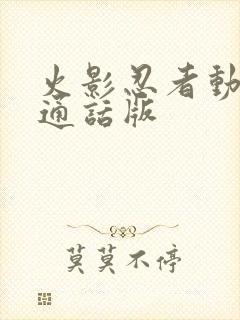 火影忍者動
通話版
莫莫不停